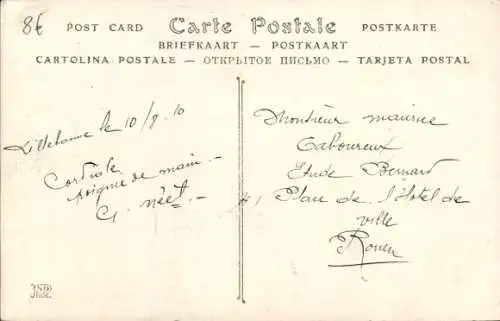 8f
POST CARD Carte Postale POSTKARTE
BRIEFKAART — POSTKAART
CARTOLINA POSTALE — ОТКРЫТОЕ ПИСЬМО — TARJETA POSTAL
Lillebonne le 10/8 10
Cordiale
poignée de main
G. néel
Monsieur maurice
Caboureux
Etude Bernard
Place de l'Hôtel de
ville
Rouen
ND
Phot.